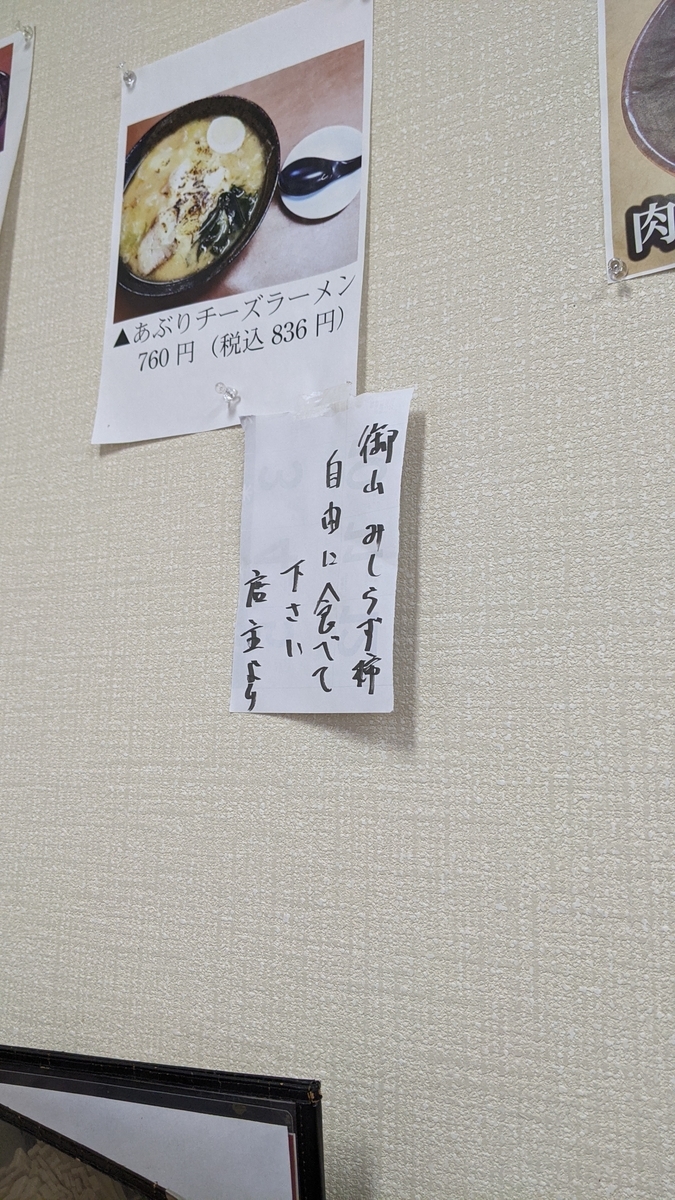 ▲あぶりチーズラーメン
760円（税込836円）
御山みしらず柿
自由に食べて
下さい
店主より
肉